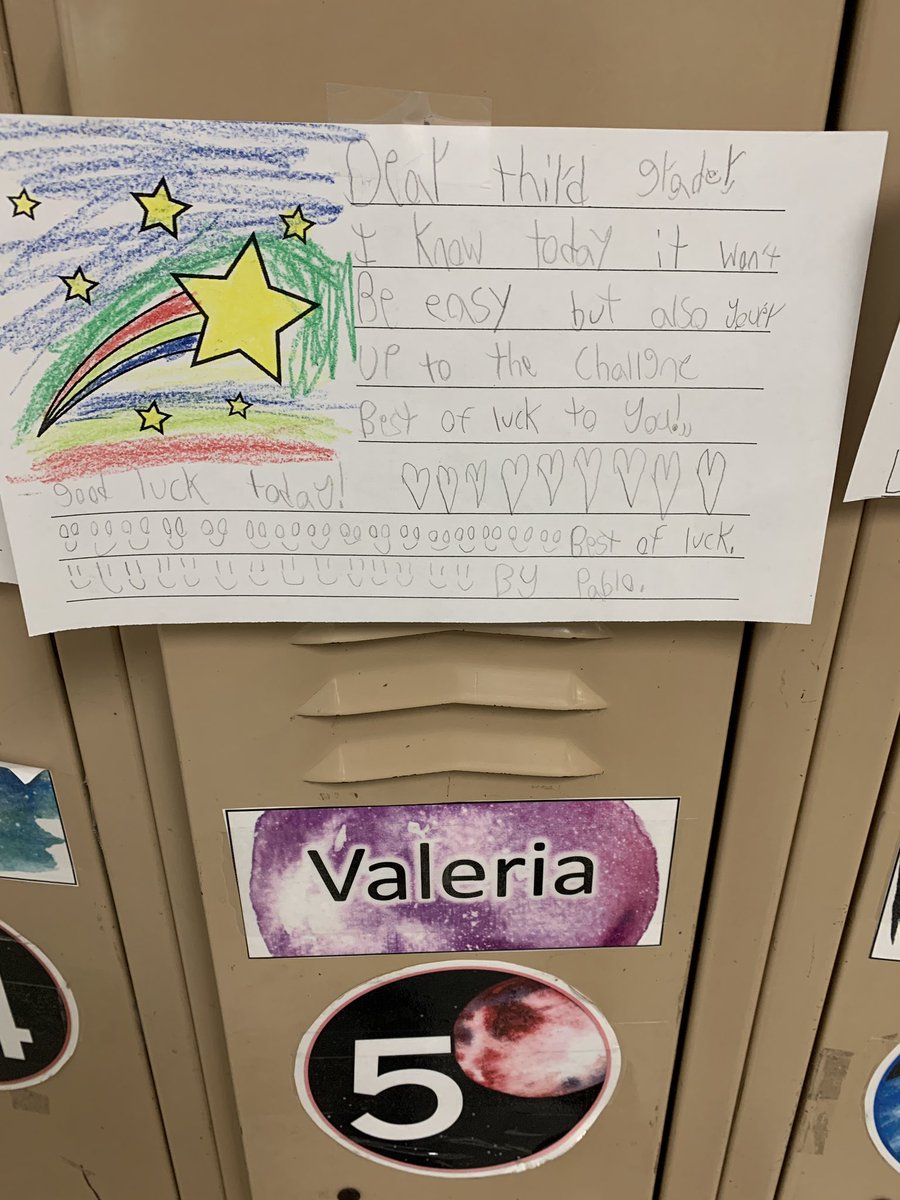 Dear third grader,
I know today it won't
Be easy but also your'r
UP to the challgne
Best of luck to You!,,
good luck today!
Best of luck.
BY Pablo.
Valeria
5
4